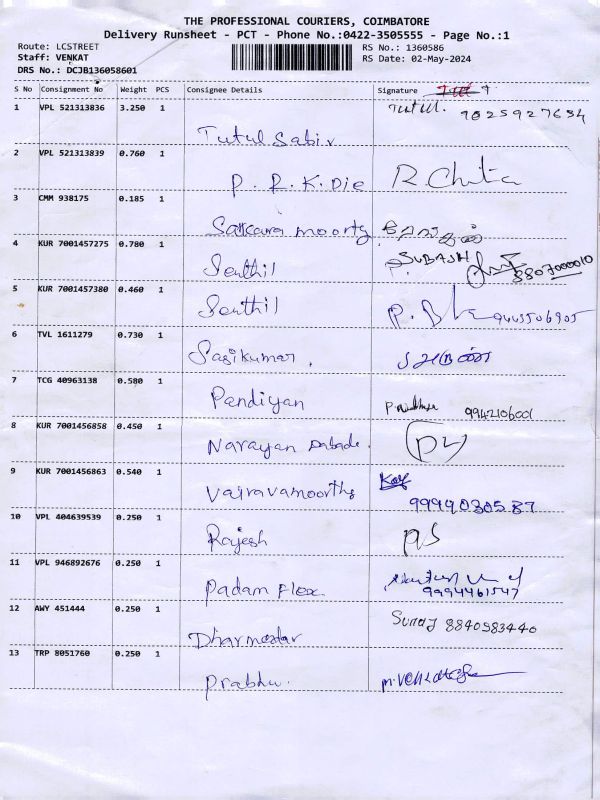 THE PROFESSIONAL COURIERS, COIMBATORE
Delivery Runsheet - PCT - Phone No.:0422-3505555 - Page No.:1
Route: LCSTREET RS No.: 1360586
Staff: VENKAT RS Date: 02-May-2024
DRS No.: DCJB136058601
S No Consignment No Weight PCS Consignee Details Signature
1 VPL 521313836 3.250 1 Tutul Sabir Tutul.
2 VPL 521313839 0.760 1 P. R. K. Die
3 CMM 938175 0.185 1 moorty
4 KUR 7001457275 0.780 1 Senthil SUBASH
5 KUR 7001457380 0.460 1 Senthil
6 TVL 1611279 0.730 1 Sasikumar.
7 TCG 40963138 0.580 1 Pandiyan 9942106001
8 KUR 7001456858 0.450 1 Narayan Dabade.
9 KUR 7001456863 0.540 1 Vairavamoorthy
10 VPL 404639539 0.250 1 Rajesh
11 VPL 946892676 0.250 1 Padam Flex 9994461547
12 AWY 451444 0.250 1 Suraj
13 TRP 8051760 0.250 1 Prabhu.